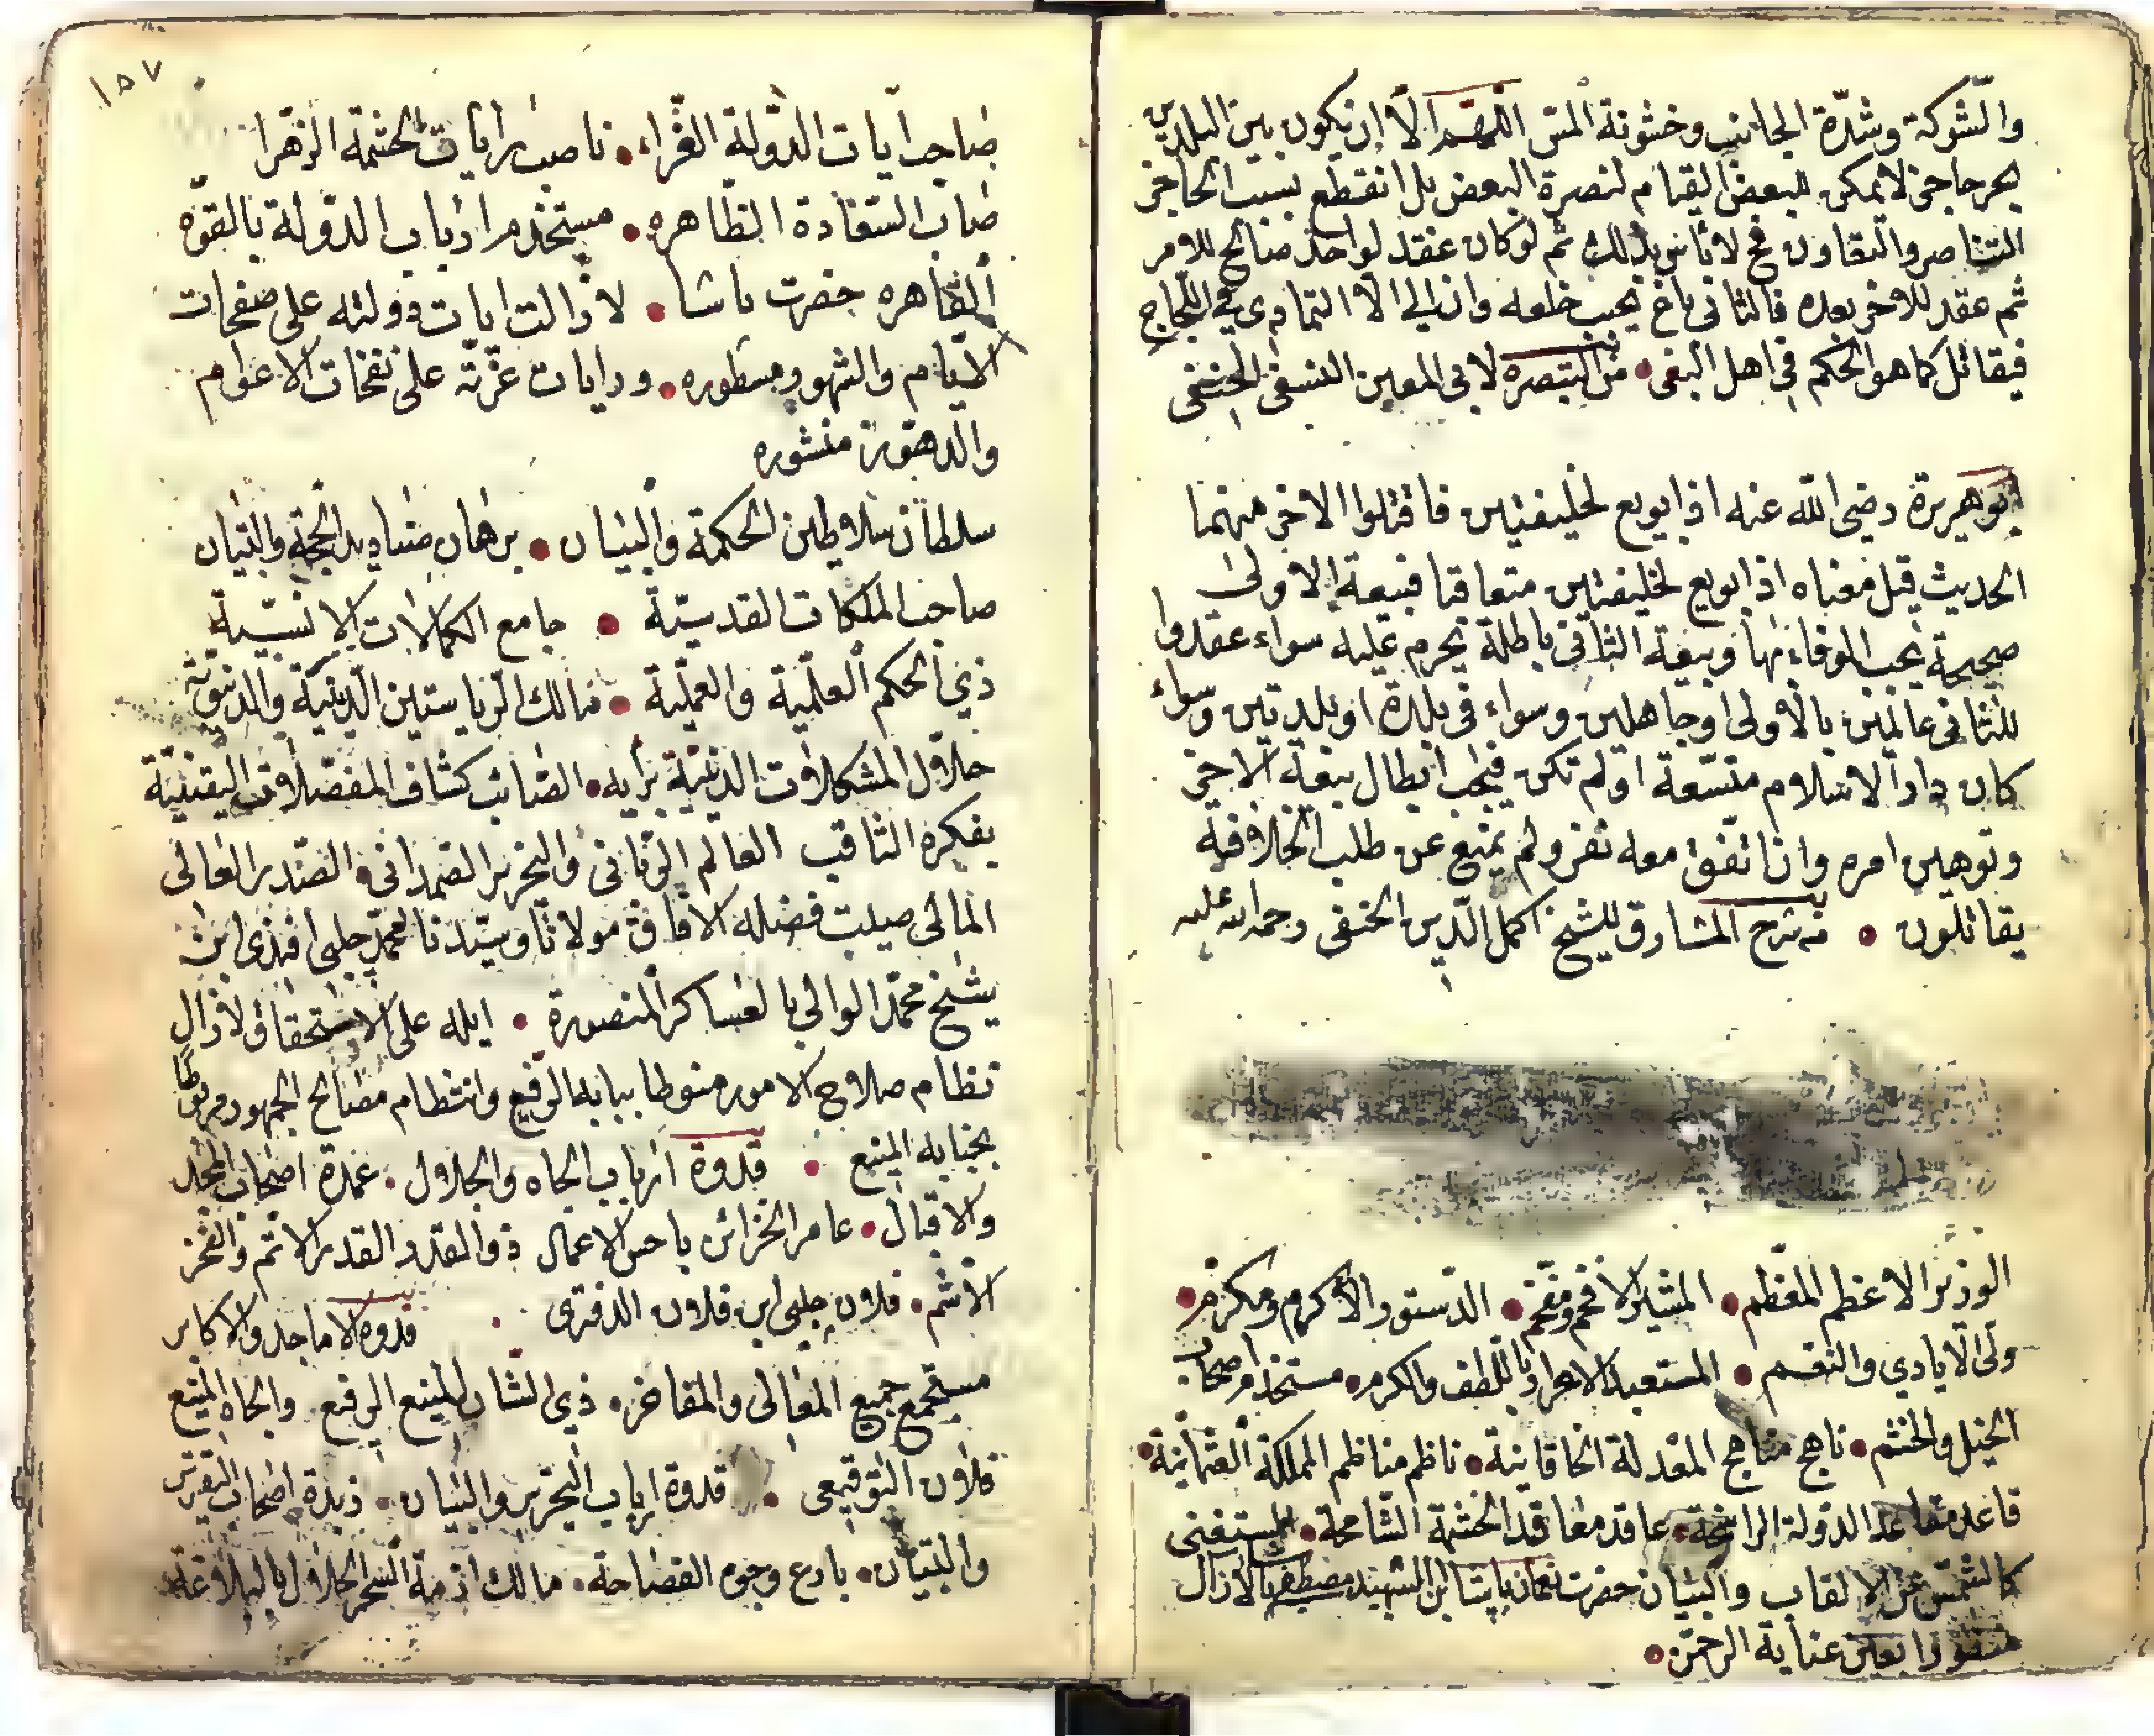 والشوكة وشدة الجانب وخشونة المس اللهم الا ان يكون بين البلدتين
بحر حاجز لا يمكن للبعض القيام لنصرة البعض بل انقطع بسبب الحاجز
التناصر والتعاون فح لا باس بذلك ثم لو كان عقد لواحد صالح للامر
ثم عقد للاخر بعده فالثاني باغ يجب خلعه وان ابي الا التمادي في اللجاج
فيقاتل كما هو الحكم في اهل البغي • من التبصرة لابي المعين النسفي الحنفي
ابو هريرة رضي الله عنه اذا بويع لخليفتين فاقتلوا الاخر منهما
الحديث قيل معناه اذا بويع لخليفتين متعاقبا فبيعة الاولى
صحيحة يجب الوفاء بها وبيعة الثاني باطلة يحرم عليه سواء عقدوا
للثاني عالمين بالاولى او جاهلين وسواء في بلدة او بلدتين وسواء
كان دار الاسلام متسعة او لم تكن فيجب ابطال بيعة الاخر
وتوهين امره وان اتفق معه نفر ولم يمتنع عن طلب الخلافة
يقاتلون • من شرح المشارق للشيخ اكمل الدين الحنفي رحمة الله عليه
الوزير الاعظم المعظم • المشير الافخم ومفخم • الدستور الاكرم ومكرم •
ولي الايادي والنعم • المستعبد الاحرار باللطف والكرم • مستخدم اصحاب
الخيل والحشم • ناهج مناهج المعدلة الخاقانية • ناظم مناظم المملكة العثمانية •
قاعد مقاعد الدولة الراسخة • عاقد معاقد الحشمة الشامخة • المستغني
كالشمس عن الالقاب والبيان حضرت نعمان پاشا ابن الشهيد مصطفى پاشا لازال
منظورا بعين عناية الرحمن •
١٥٧
صاحب ايات الدولة الغراء • ناصب رايات الحشمة الزهرا
صاب السعادة الظاهره • مستخدم ارباب الدولة بالقوة
القاهره حضرت پاشا • لا زالت ايات دولته على صفحات
الايام والشهور مسطوره • ورايات عزته على نفخات الاعوام
والدهور منشوره
سلطان سلاطين الحكمة والبيان • برهان صناديد الحجة والتبيان
صاحب الملكات القدسية • جامع الكمالات الانسية
ذي الحكم العلمية والعملية • مالك الرياستين الدينية والدنيوية
حلال المشكلات الدينية برايه • الصائب كشاف المفصلات اليقينية
بفكره الثاقب العالم الرباني والنحرير الصمداني • الصدر العالي
المالي صيت فضله الافاق مولانا وسيدنا محمد چلبي افندي ابن
شيخ محمد الوالي بالعساكر المنصورة • ايله على الاستحقاق لا زال
نظام صلاح الامور منوطا ببابه الرفيع وانتظام مصالح الجمهور مربوطا
بجنابه المنيع • قدوة ارباب الجاه والجلال • عمدة اصحاب المجد
والاقبال • عامر الخزائن باحسن الاعمال ذو القدر الاتم والفخر
الاشم • فلان چلبي ابن فلان الدفتري • قدوه الاماجد والاكابر
مستجمع جميع المعالي والمفاخر • ذي الشان المنيع الرفيع والجاه المنيع
فلان التوقيعي • قدوة ارباب التحرير والبيان • زبدة اصحاب التقرير
والتبيان • بارع وجوه الفصاحة • مالك ازمة السحر الحلال بالبلاغة